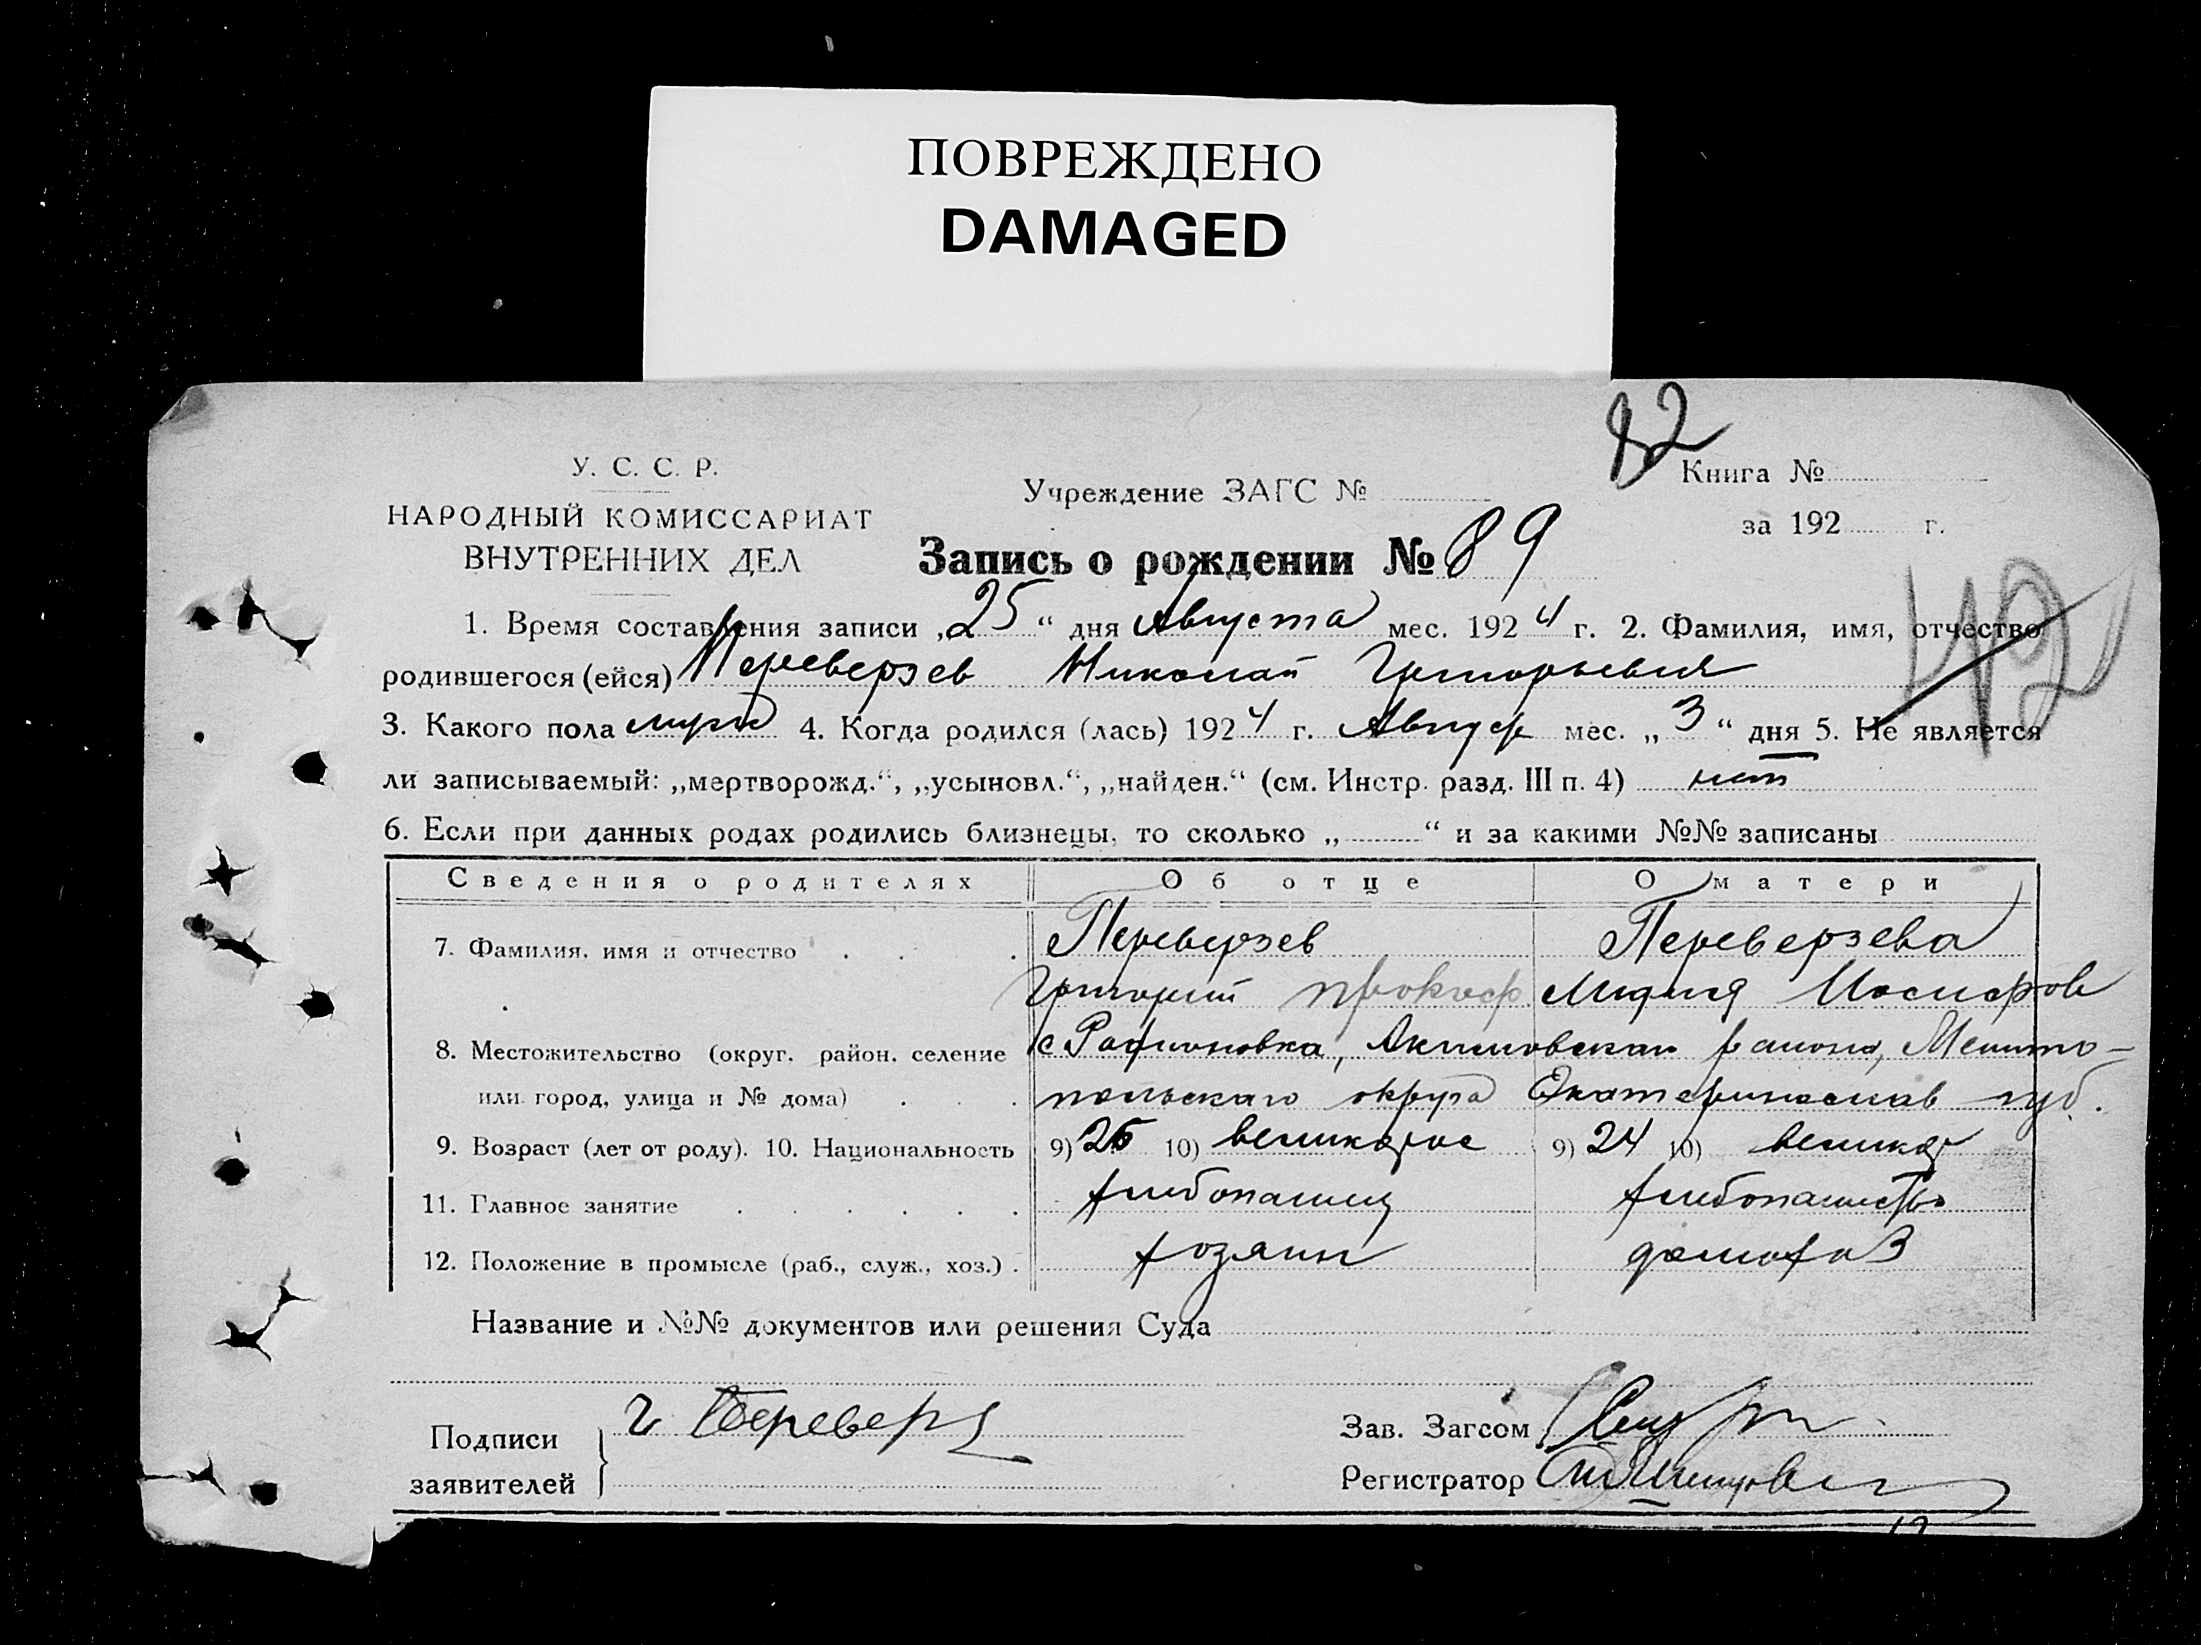 ПОВРЕЖДЕНО
DAMAGED
82
У. С. С. Р.
НАРОДНЫЙ КОМИССАРИАТ
ВНУТРЕННИХ ДЕЛ
Учреждение ЗАГС №
Книга №
за 192 г.
Запись о рождении № 89
1. Время составления записи „25“ дня Августа мес. 1924 г. 2. Фамилия, имя, отчество
родившегося (ейся) Переверзев Николай Григорьевич
3. Какого пола муж 4. Когда родился (лась) 1924 г. Август мес. „3“ дня 5. Не является
ли записываемый: „мертворожд.“, „усыновл.“, „найден.“ (см. Инстр. разд. III п. 4) нет
6. Если при данных родах родились близнецы, то сколько „ “ и за какими №№ записаны
Сведения о родителях Об отце О матери
7. Фамилия, имя и отчество Переверзев Переверзева
Григорий Прокоф Лидия Иосифов
8. Местожительство (округ, район, селение с Родионовка, Акимовского района, Мелито-
или город, улица и № дома) польского округа Екатеринослав губ.
9. Возраст (лет от роду). 10. Национальность 9) 25 10) великорос 9) 24 10) великор
11. Главное занятие хлебопашец хлебопашество
12. Положение в промысле (раб., служ., хоз.) хозяин домохоз
Название и №№ документов или решения Суда
Подписи
заявителей
Г Переверз
Зав. Загсом
Регистратор